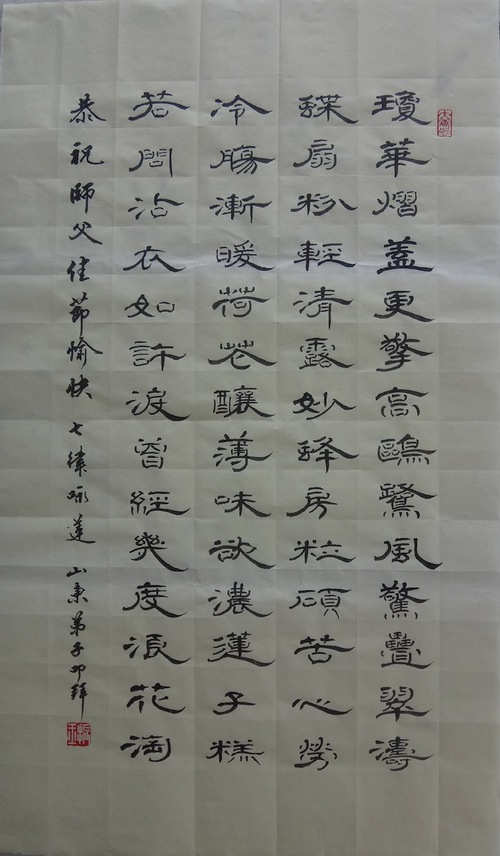 瓊華熠蓋更擎高鷗鷺風驚疊翠濤
蝶扇粉輕清露妙蜂房粒碩苦心勞
冷腸漸暖荷芲釀薄味欲濃蓮子糕
若問沾衣如許淚曾經幾度浪花淘
恭祝師父佳節愉快 七律咏蓮 山東弟子叩拜